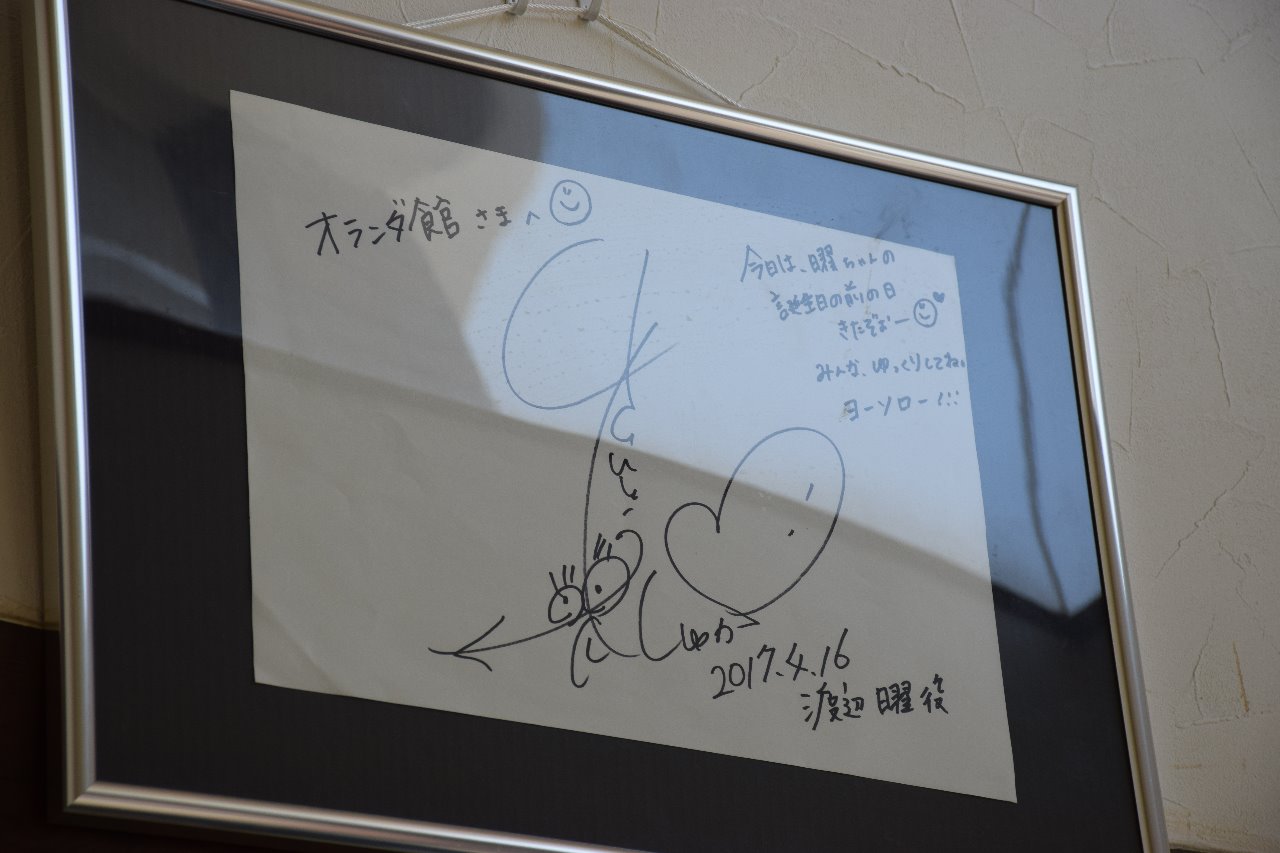 オランダ館さまへ
今日は、曜ちゃんの
誕生日の前の日
きたぞぉー
みんな、ゆっくりしてね。
ヨーソロー!!!
しゅか
2017.4.16
渡辺曜役